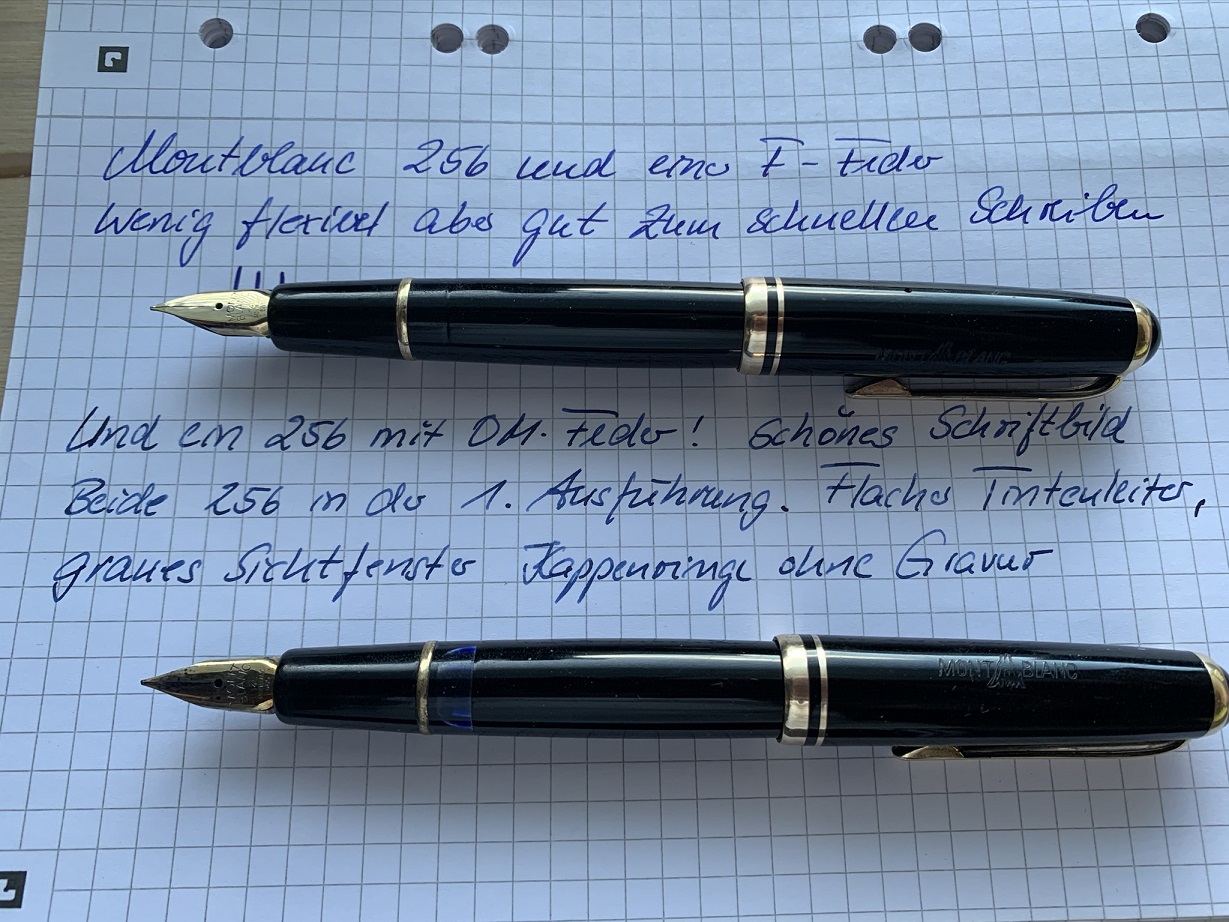 Montblanc 256 und eine F-Feder
Wenig flexibel aber gut zum schnellen Schreiben
MONT BLANC
Und ein 256 mit OM. Feder! Schönes Schriftbild
Beide 256 in der 1. Ausführung. Flacher Tintenleiter,
graues Sichtfenster Kappenringe ohne Gravur
MONT BLANC